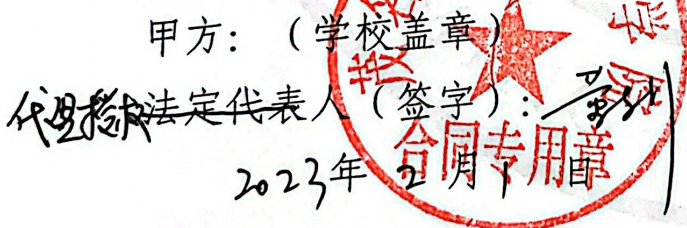 甲方：（学校盖章）
代理授权法定代表人（签字）：
2023年2月1日
合同专用章